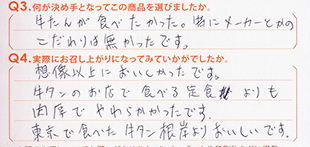 Q3.何が決め手となってこの商品を選びましたか。
牛たんが食べたかった。特にメーカーとかの
こだわりは無かったです。
Q4.実際にお召し上がりになってみていかがでしたか。
想像以上においしかったです。
牛タンのお店で食べる定食よりも
肉厚でやわらかかったです。
東京で食べた牛タン根岸よりおいしいです。